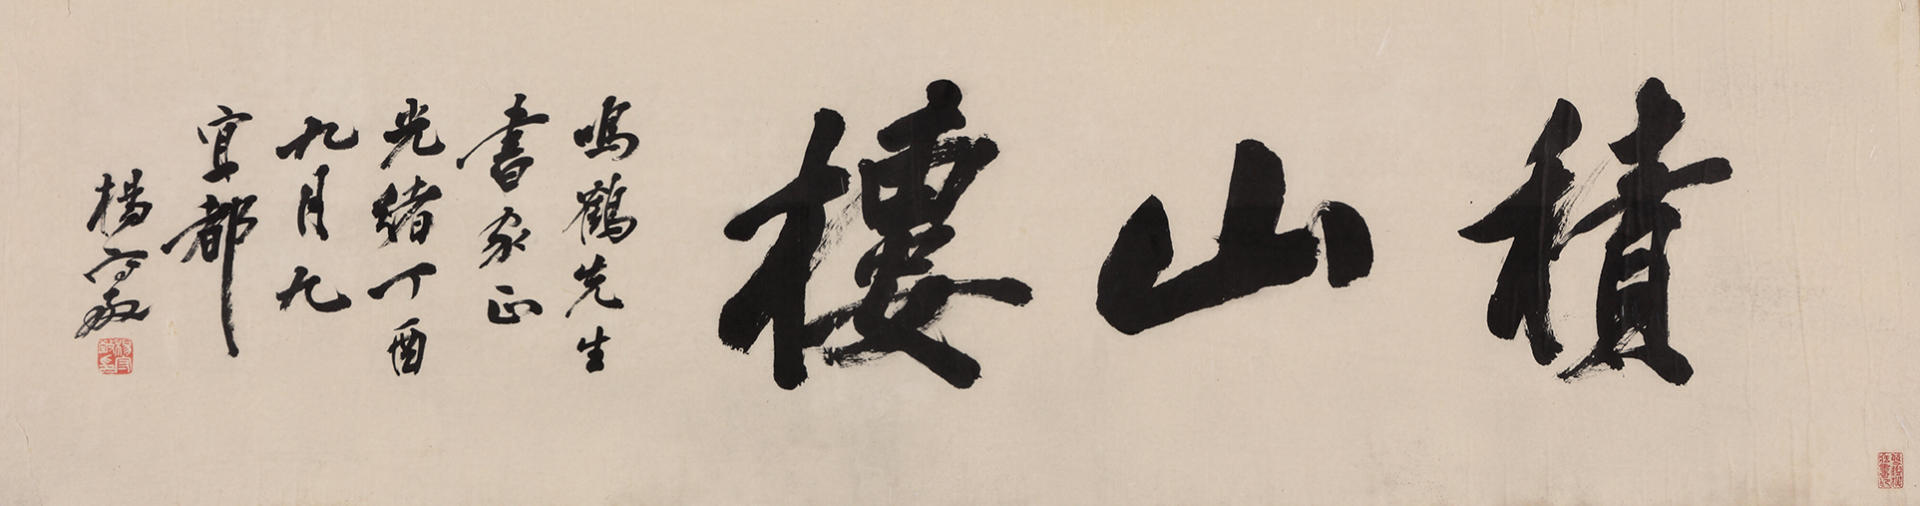 積山樓
鳴鶴先生
書家正
光緒丁酉
九月九
宜都
楊守敬
楊守敬印